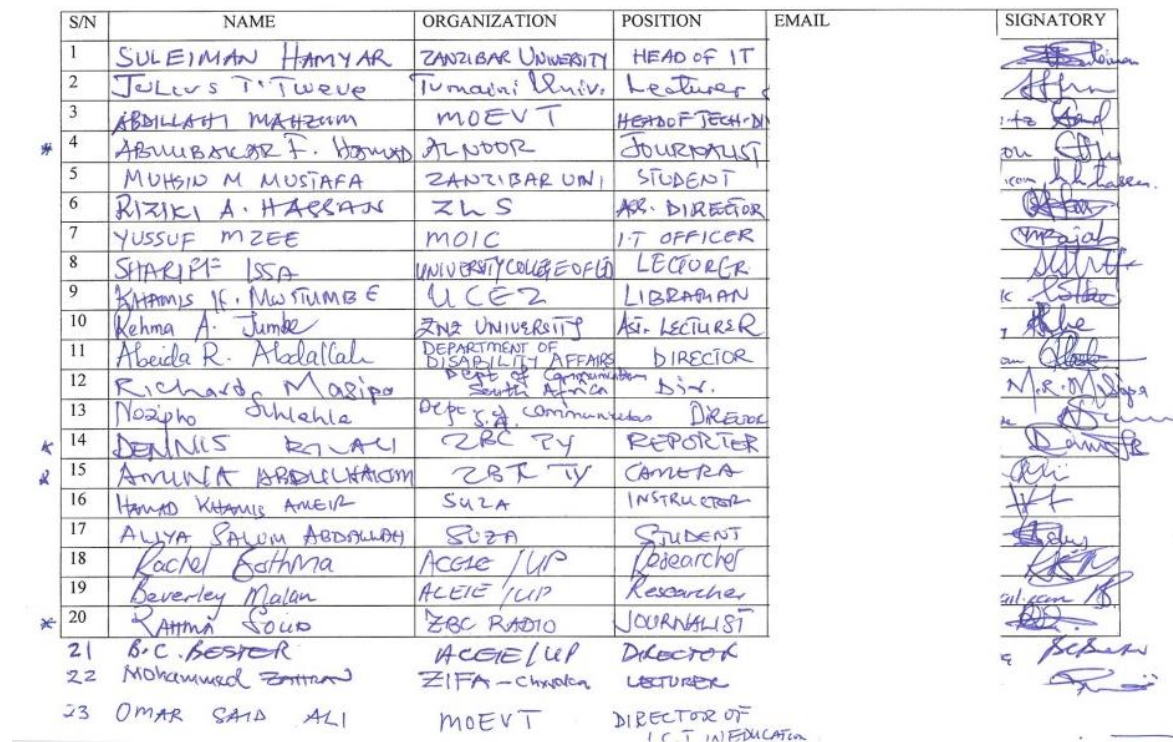 S/N NAME ORGANIZATION POSITION EMAIL SIGNATORY
1 SULEIMAN HAMYAR ZANZIBAR UNIVERSITY HEAD OF IT
2 JULIUS T. TWEVE Tumaini Univ. Lecturer
3 ABDILLAHI MAHZUM MOEVT HEAD OF TECH-DI
4 ABUUBAKAR F. HAMAD ALNOOR JOURNALIST
5 MUHSIN M MUSTAFA ZANZIBAR UNI STUDENT
6 RIZIKI A. HASSAN ZLS ASS. DIRECTOR
7 YUSSUF MZEE MOIC I.T OFFICER
8 SHARIFF ISSA UNIVERSITY COLLEGE OF ED LECTURER
9 KHAMIS H. UCEZ LIBRARIAN
10 Rehma A. Jumbe ZNZ UNIVERSITY AST. LECTURER
11 Abeida R. Abdallah DEPARTMENT OF DISABILITY AFFAIRS DIRECTOR
12 Richard Masipa Dept of Communication South Africa Dir.
13 Nozipho Dept of communications S.A. DIRECTOR
14 DENNIS ZBC TV REPORTER
15 AMINA ABDULHAKIM ZBC TV CAMERA
16 HAMAD KHAMIS AMEIR SUZA INSTRUCTOR
17 ALIYA SALUM ABDALLAH SUZA STUDENT
18 Rachel Bothma ACEIE/UP Researcher
19 Beverley Malan ACEIE/UP Researcher
20 RAHMA ZBC RADIO JOURNALIST
21 B.C. BESTER ACEIE/UP DIRECTOR
22 Mohammed ZAHRAN ZIFA - LECTURER
23 OMAR SAID ALI MOEVT DIRECTOR OF
I.C.T IN EDUCATION